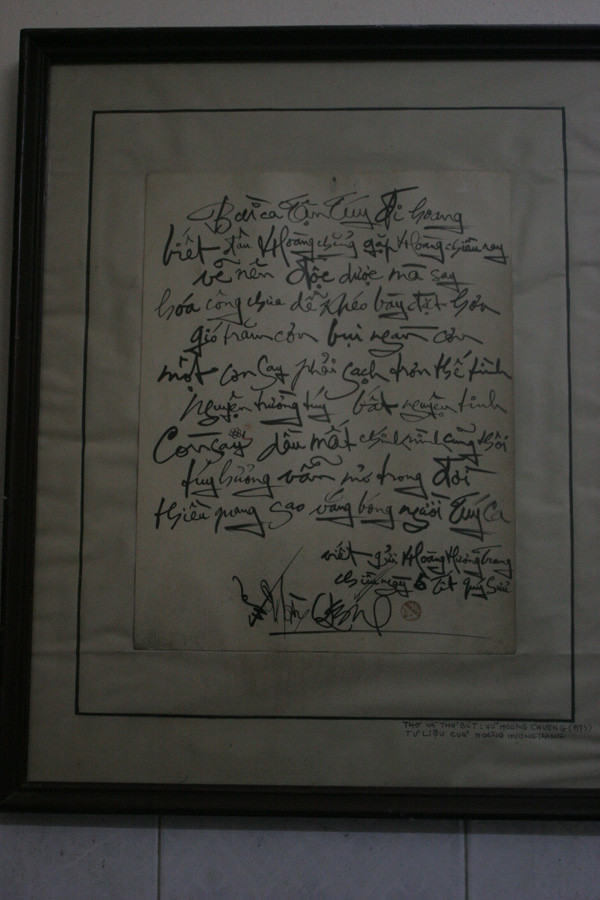 Bài ca Tận Túy đi hoang
biết đâu Hoàng chẳng gặp Hoàng chiều nay
về nên độc dược mà say
hóa công chưa dễ khéo bày đặt hơn
gió trăm cơn bụi ngàn cơn
một cơn say phải sạch trơn thế tình
nguyện trường túy bất nguyện tỉnh
Còn say dẫu mất chính mình cũng thôi
túy hương vẫn mở trong đời
thiều quang sao vắng bóng người Túy Ca
viết gửi Hoàng Hương Trang
chiều ngày 6 tết Quý Sửu
Hoàng Chương
THƠ VÀ THỦ BÚT CỦA HOÀNG CHƯƠNG (1973)
TƯ LIỆU CỦA HOÀNG HƯƠNG TRANG